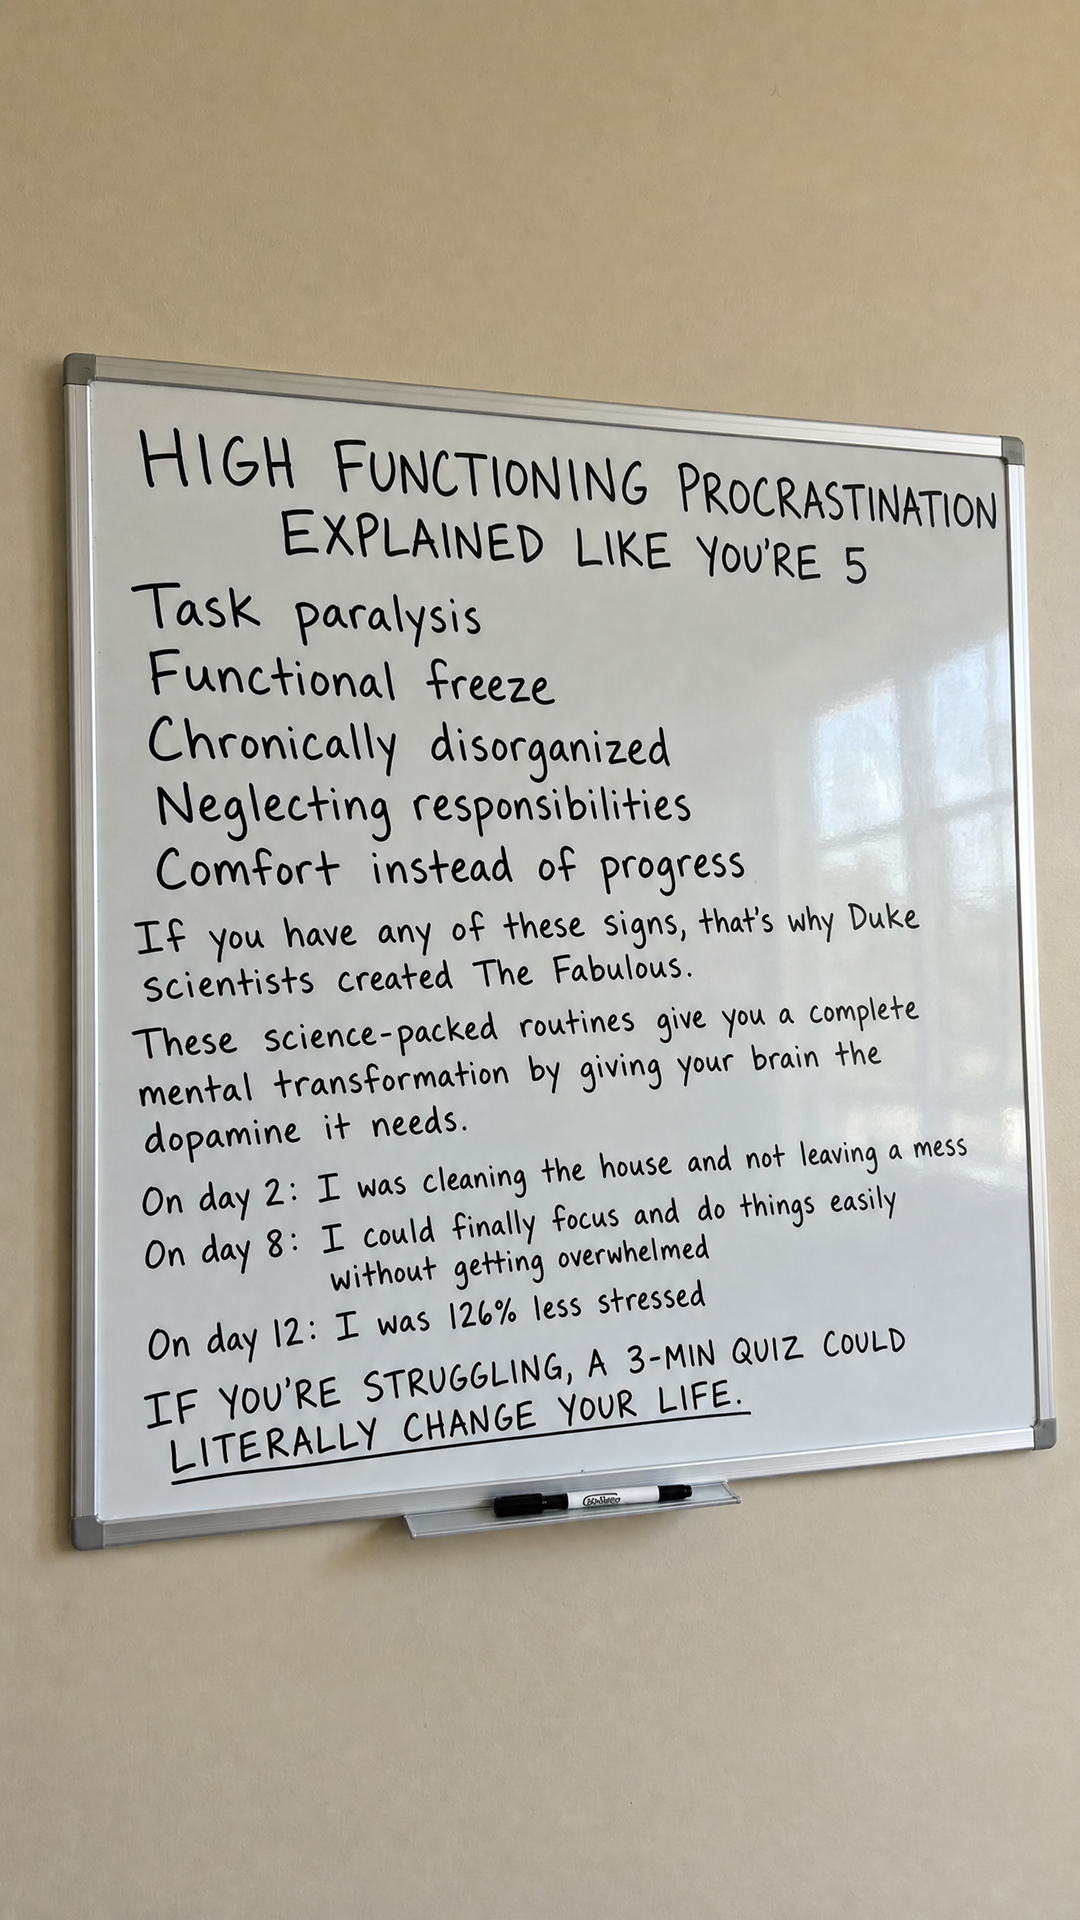 HIGH FUNCTIONING PROCRASTINATION
EXPLAINED LIKE YOU'RE 5
Task paralysis
Functional freeze
Chronically disorganized
Neglecting responsibilities
Comfort instead of progress
If you have any of these signs, that's why Duke
scientists created The Fabulous.
These science-packed routines give you a complete
mental transformation by giving your brain the
dopamine it needs.
On day 2: I was cleaning the house and not leaving a mess
On day 8: I could finally focus and do things easily
without getting overwhelmed
On day 12: I was 126% less stressed
IF YOU'RE STRUGGLING, A 3-MIN QUIZ COULD
LITERALLY CHANGE YOUR LIFE.